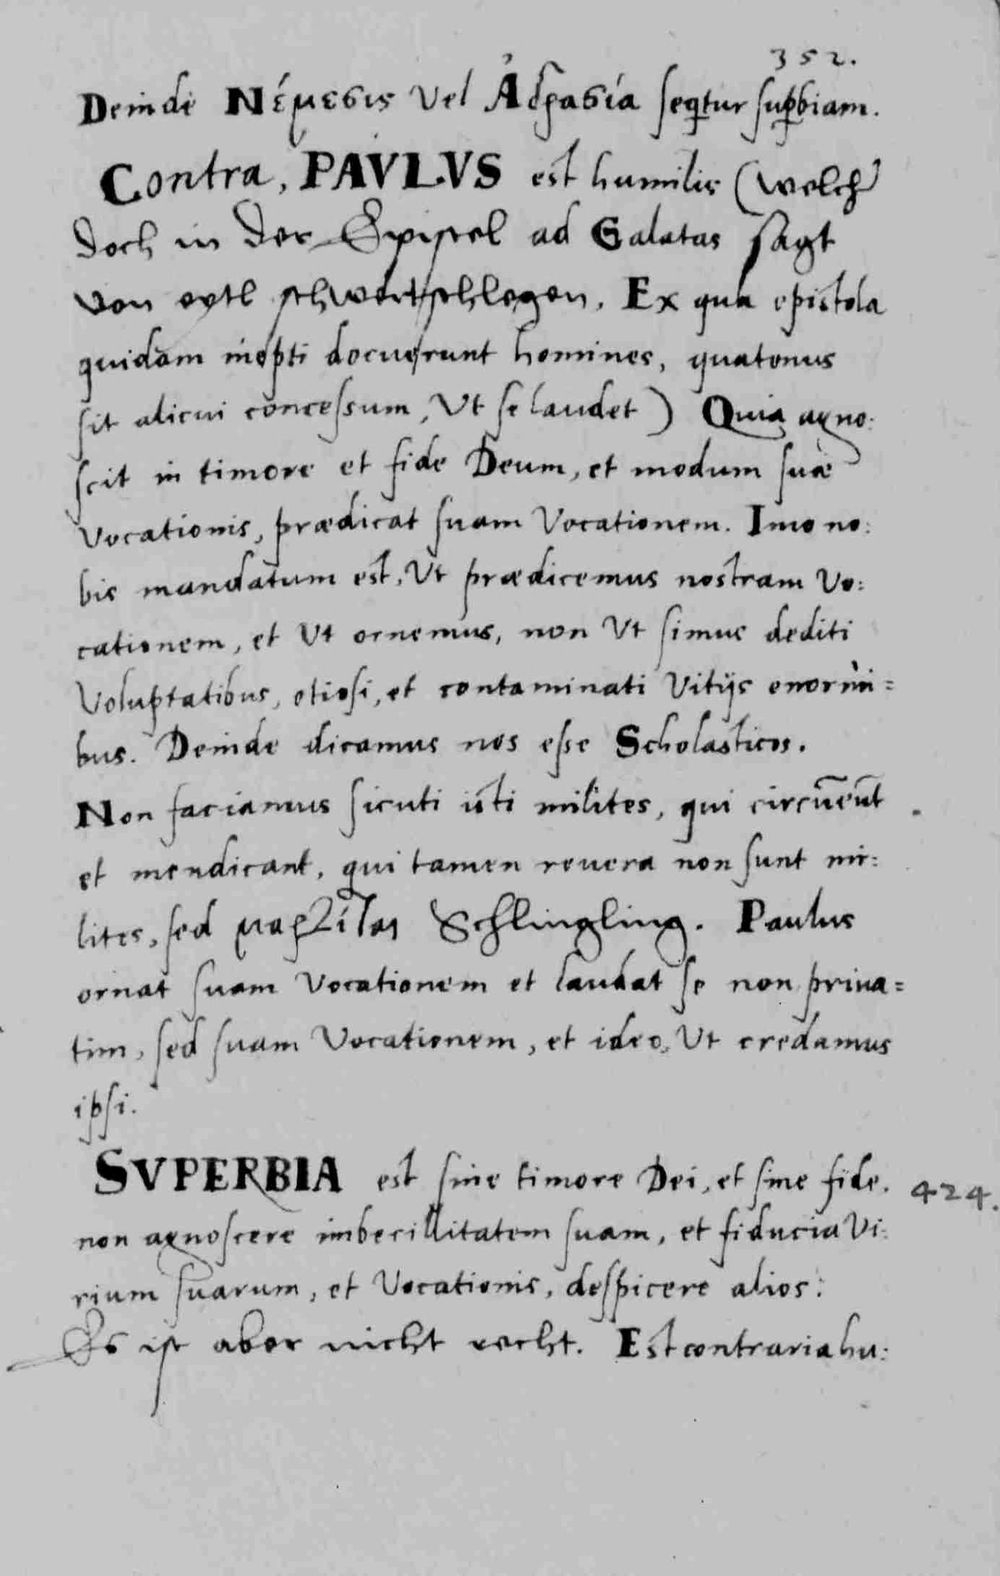 352.
Deinde Νέμεσις vel Ἀδρασία seqtur supbiam.
Contra, PAVLVS est humilis (welcher
doch in der Epistel ad Galatas sagt
von eytl schwertschlegen. Ex qua epistola
quidam inepti docuerunt homines, quatenus
sit alicui concessum, Vt se laudet) Quia agno:
scit in timore et fide Deum, et modum suæ
Vocationis, prædicat suam Vocationem. Imo no:
bis mandatum est, Vt prædicemus nostram Vo:
cationem, et Vt ornemus, non Vt simus dediti
Voluptatibus, otiosi, et contaminati Vitijs enormi=
bus. Deinde dicamus nos esse Scholasticos.
Non faciamus sicuti isti milites, qui circūeūt
et mendicant, qui tamen reuera non sunt mi:
lites, sed Schlingling. Paulus
ornat suam Vocationem et laudat se non priua=
tim, sed suam Vocationem, et ideo, Vt credamus
ipsi.
SVPERBIA est sine timore Dei, et sine fide.
424.
non agnoscere imbecillitatem suam, et fiducia Vi:
rium suarum, et Vocationis, despicere alios:
Es ist aber nicht recht. Est contraria hu: